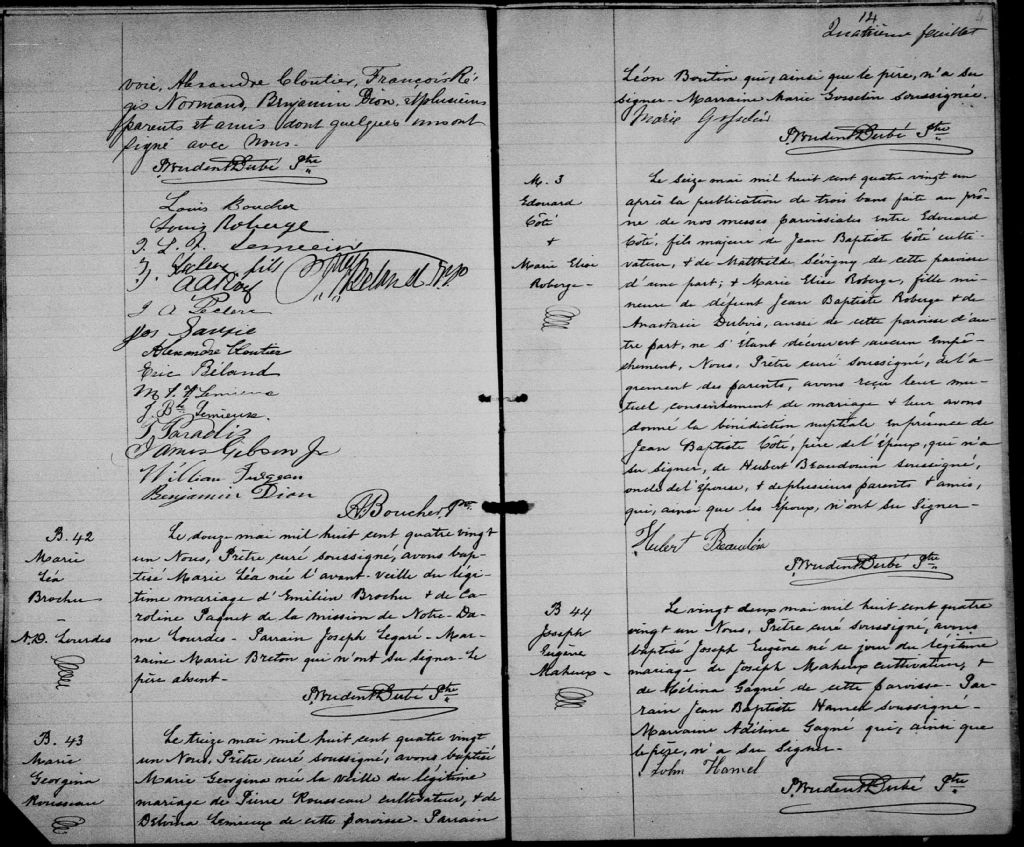 voie, Alexandre Cloutier, François Ré-
gis Normand, Benjamin Dion, et plusieurs
parents et amis dont quelques uns ont
signé avec nous.
Prudent Dubé Ptre
Louis Boucher
Louis Roberge
fils
J A Leclerc
Jos Savoie
Alexandre Cloutier
Eric Béland
J. Bte Lemieux
Paradis
James Gibson Jr
William Turgeon
Benjamin Dion
Boucher Ptre
B. 42
Marie
Léa
Brochu
-
N.D. Lourdes
Le douze mai mil huit cent quatre vingt
un Nous, Prêtre curé soussigné, avons bap-
tisé Marie Léa née l'avant-veille du légi-
time mariage d'Emilien Brochu + de Ca-
roline Paquet de la mission de Notre-Da-
me Lourdes - Parrain Joseph Legaré - Mar-
raine Marie Breton qui n'ont su signer - Le
père absent -
Prudent Dubé Ptre
B. 43
Marie
Georgina
Rousseau
Le treize mai mil huit cent quatre vingt
un Nous, Prêtre curé soussigné, avons baptisé
Marie Georgina née la veille du légitime
mariage de Pierre Rousseau cultivateur, + de
Delvina Lemieux de cette paroisse - Parrain
14
Quatrième feuillet
4
Léon Boutin qui, ainsi que le père, n'a su
signer - Marraine Marie Gosselin soussignée.
Marie Gosselin
Prudent Dubé Ptre
M. 3
Edouard
Côté
+
Marie Elise
Roberge -
Le seize mai mil huit cent quatre vingt un
après la publication de trois bans faite au prô-
ne de nos messes paroissiales entre Edouard
Côté, fils majeur de Jean Baptiste Côté culti-
vateur, + de Matthilde Sévigny de cette paroisse
d'une part; + Marie Elise Roberge, fille mi-
neure de défunt Jean Baptiste Roberge + de
Anastasie Dubois, aussi de cette paroisse d'au-
tre part, ne s'étant découvert aucun Empê-
chement, Nous, Prêtre curé soussigné, de l'a-
grément des parents, avons reçu leur mu-
tuel consentement de mariage + leur avons
donné la bénédiction nuptiale en présence de
Jean Baptiste Côté, père de l'Epoux, qui n'a
su signer, de Hubert Beaudoin soussigné,
oncle de l'épouse, + de plusieurs parents + amis,
qui, ainsi que les époux, n'ont su signer -
Hubert Beaudoin
Prudent Dubé Ptre
B 44
Joseph
Eugène
Maheux -
Le vingt deux mai mil huit cent quatre
vingt un Nous, Prêtre curé soussigné, avons
baptisé Joseph Eugène né ce jour du légitime
mariage de Joseph Maheux cultivateur, +
de Mélina Gagné de cette paroisse - Par-
rain Jean Baptiste Hamel soussigné -
Marraine Adeline Gagné qui, ainsi que
le père, n'a su signer -
John Hamel
Prudent Dubé Ptre